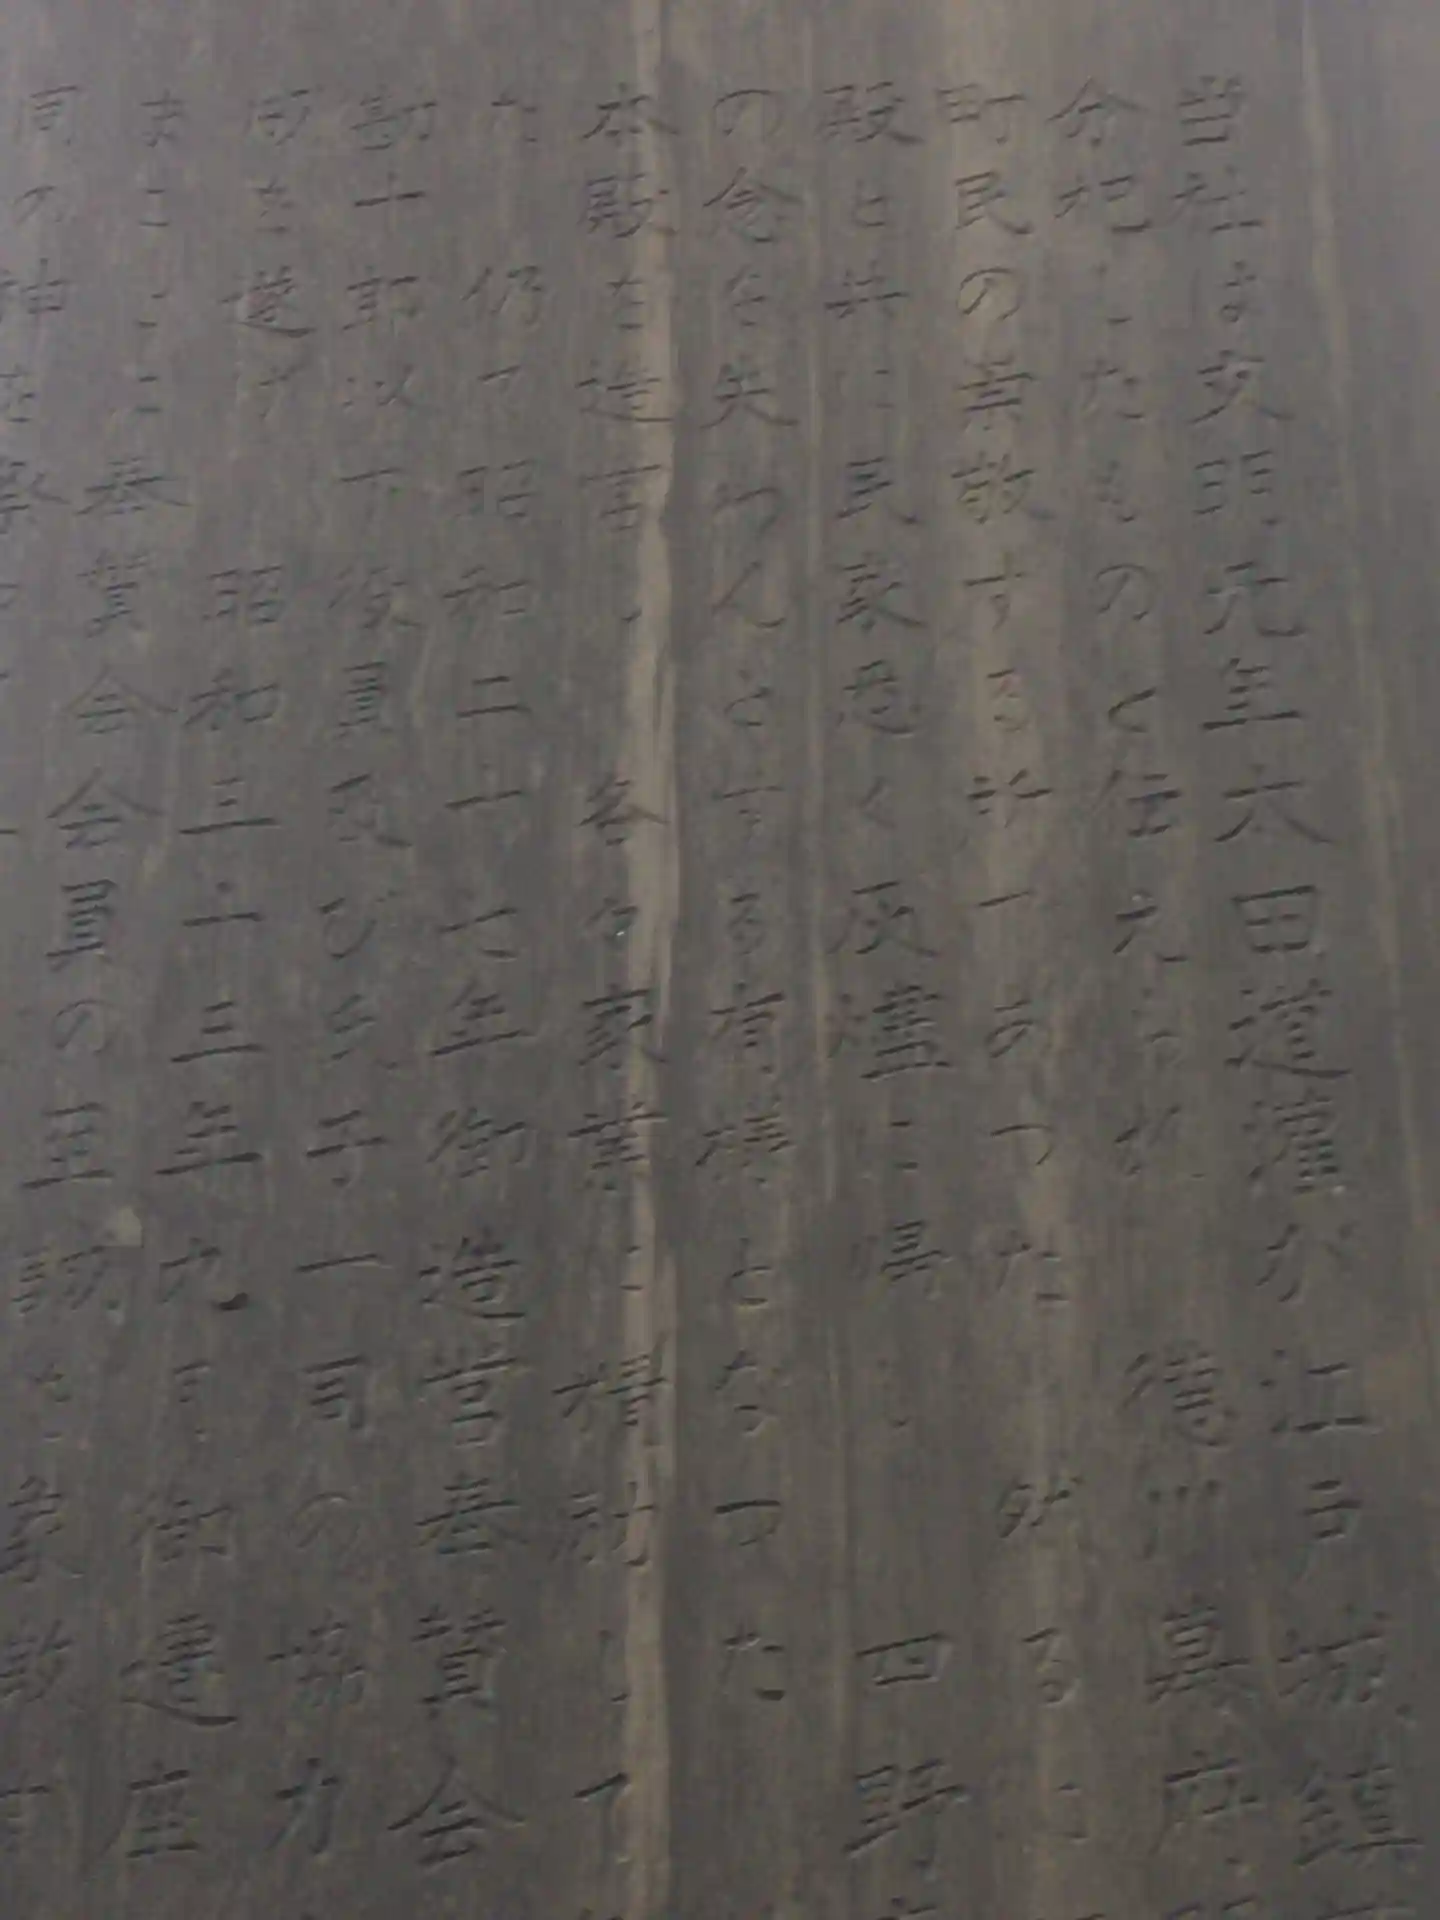 当社は文明元年太田道灌が江戸城鎮
分祀したものと伝えられ 徳川幕府
町民の崇敬する社であった 然るに
殿と共に民家悉く灰燼に帰し 四野
の念を失わんとする有様となつた
本殿を造営し 各々家業に精励して
た 仍て昭和二十七年御造営奉賛会
勘十郎以下役員及び氏子一同の協力
功を遂げ 昭和三十三年九月御遷座
まこゝに奉賛会会員の至誠を
同の神